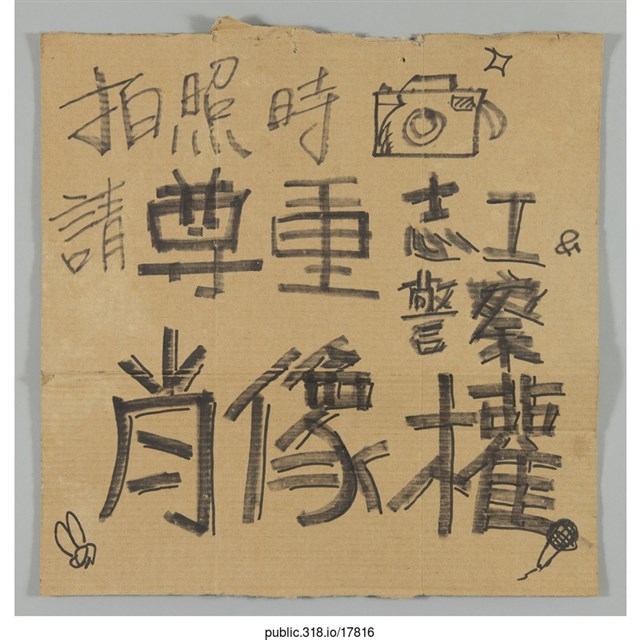 拍照時
請尊重志工
&
警察
肖像權
public.318.io/17816